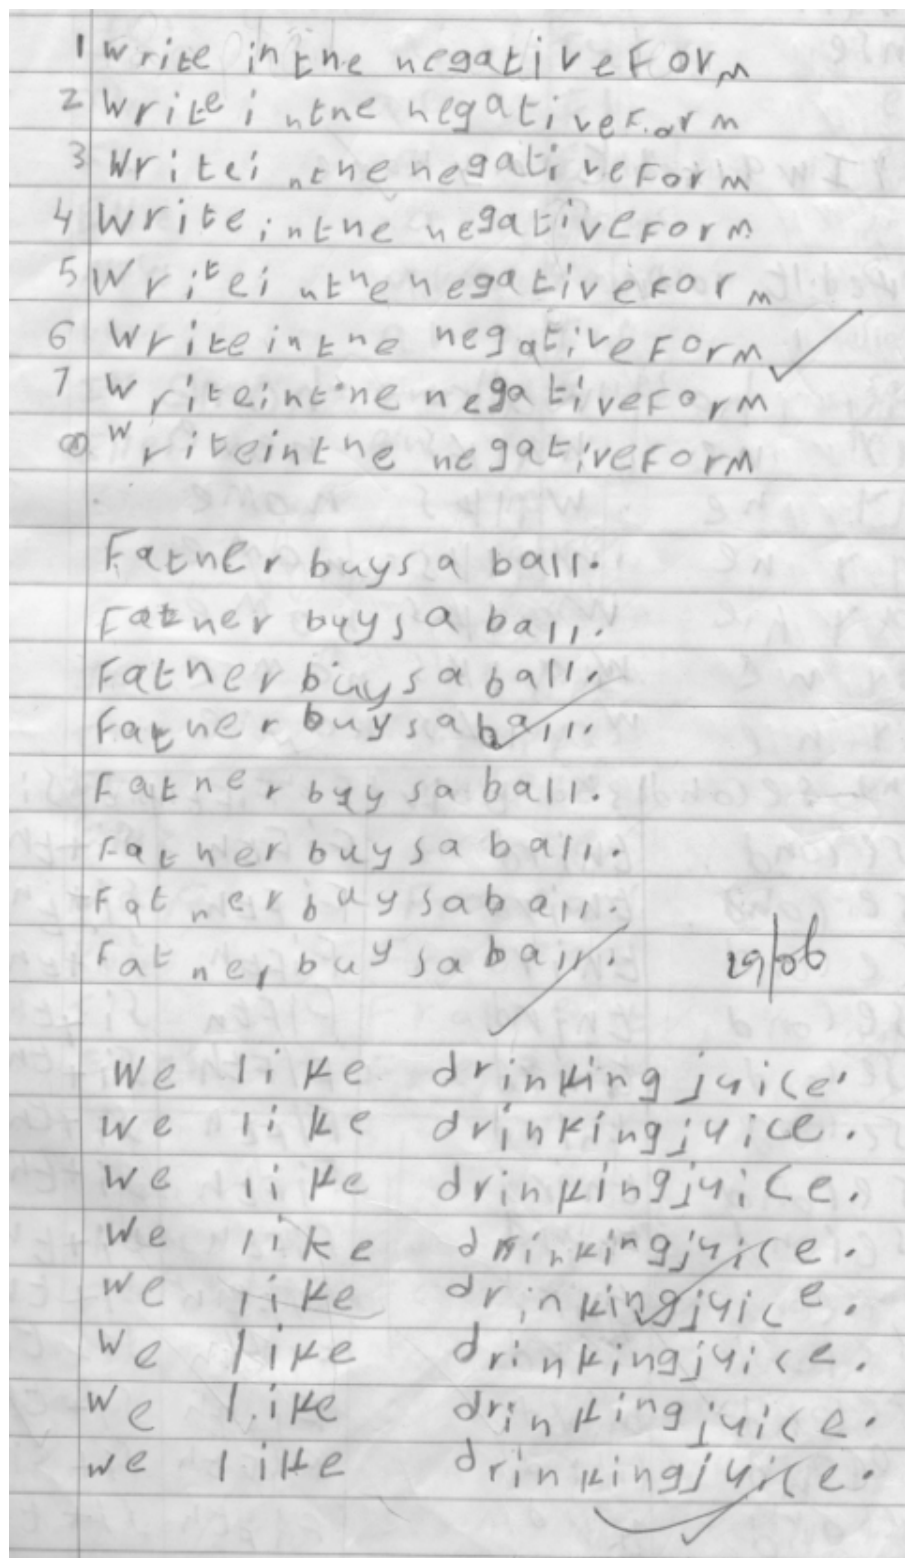 1 Write in the negative Form
2 Write in the negative Form
3 Write in the negative Form
4 Write in the negative Form
5 Write in the negative Form
6 Write in the negative Form
7 Write in the negative Form
8 Write in the negative Form
Father buys a ball.
Father buys a ball.
Father buys a ball.
Father buys a ball.
Father buys a ball.
Father buys a ball.
Father buys a ball.
Father buys a ball.
19/06
We like drinking juice.
We like drinking juice.
We like drinking juice.
We like drinking juice.
We like drinking juice.
We like drinking juice.
We like drinking juice.
We like drinking juice.